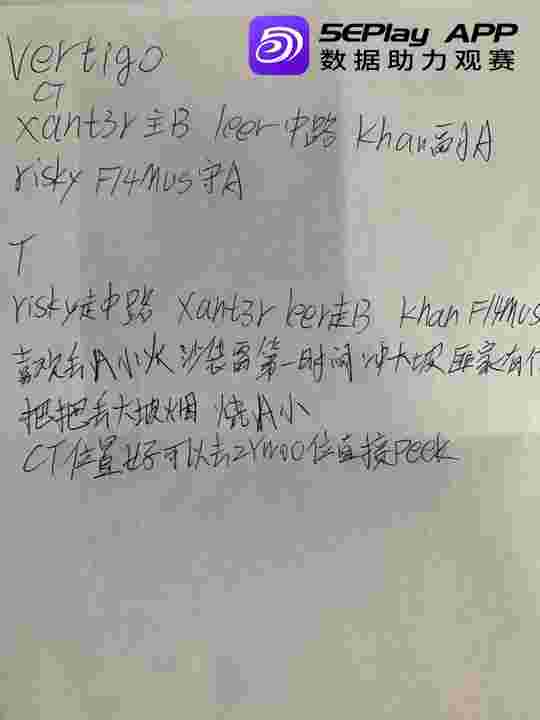 5EPlay APP
数据助力观赛
Vertigo
CT
xant3r 主B leer中路 khan副A
risky Fl4mus守A
T
risky走中路 xant3r leer走B khan Fl4mus
喜欢丢A小火 沙袋雷第一时间冲大坡 匪家有
把把丢大坡烟 烧A小
CT位置好可以去zywoo位直接peek